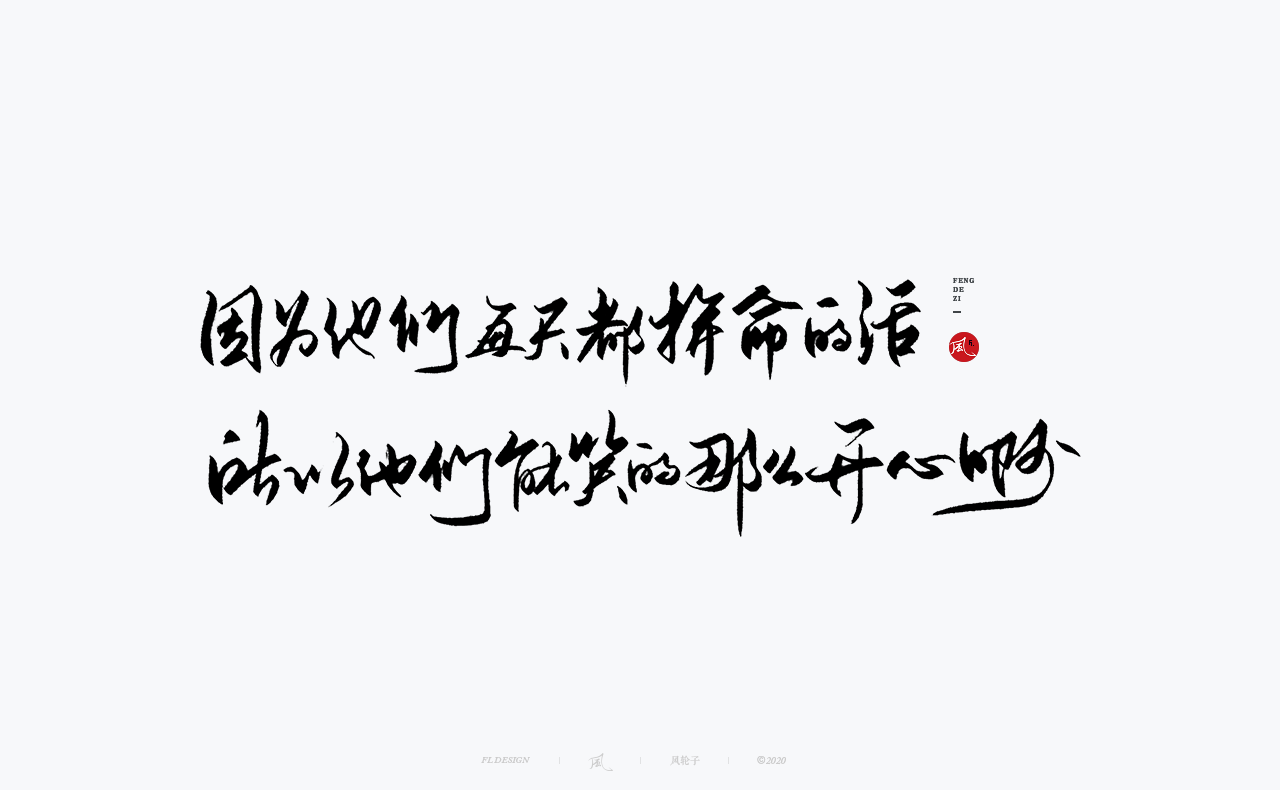 因为他们每天都拼命的活
所以他们能笑的那么开心明媚
FENG
DE
ZI
風
FL.DESIGN
風
风轮子
©2020